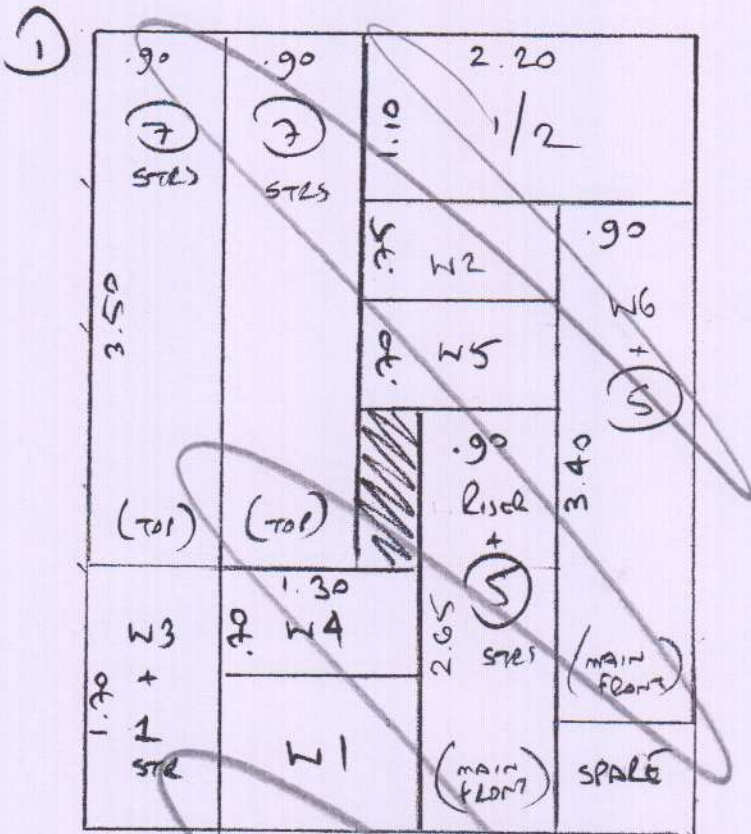 1
.90
7
STRS
3.50
(TOP)
.90
7
STRS
(TOP)
2.20
1.10
1/2
.75
W2
.70
W5
.90
W6
+
5
3.40
(MAIN
FRONT)
.90
RISER
+
5
STRS
2.65
(MAIN
FRONT)
1.70
W3
+
1
STR
1.30
.70
W4
W1
SPARE